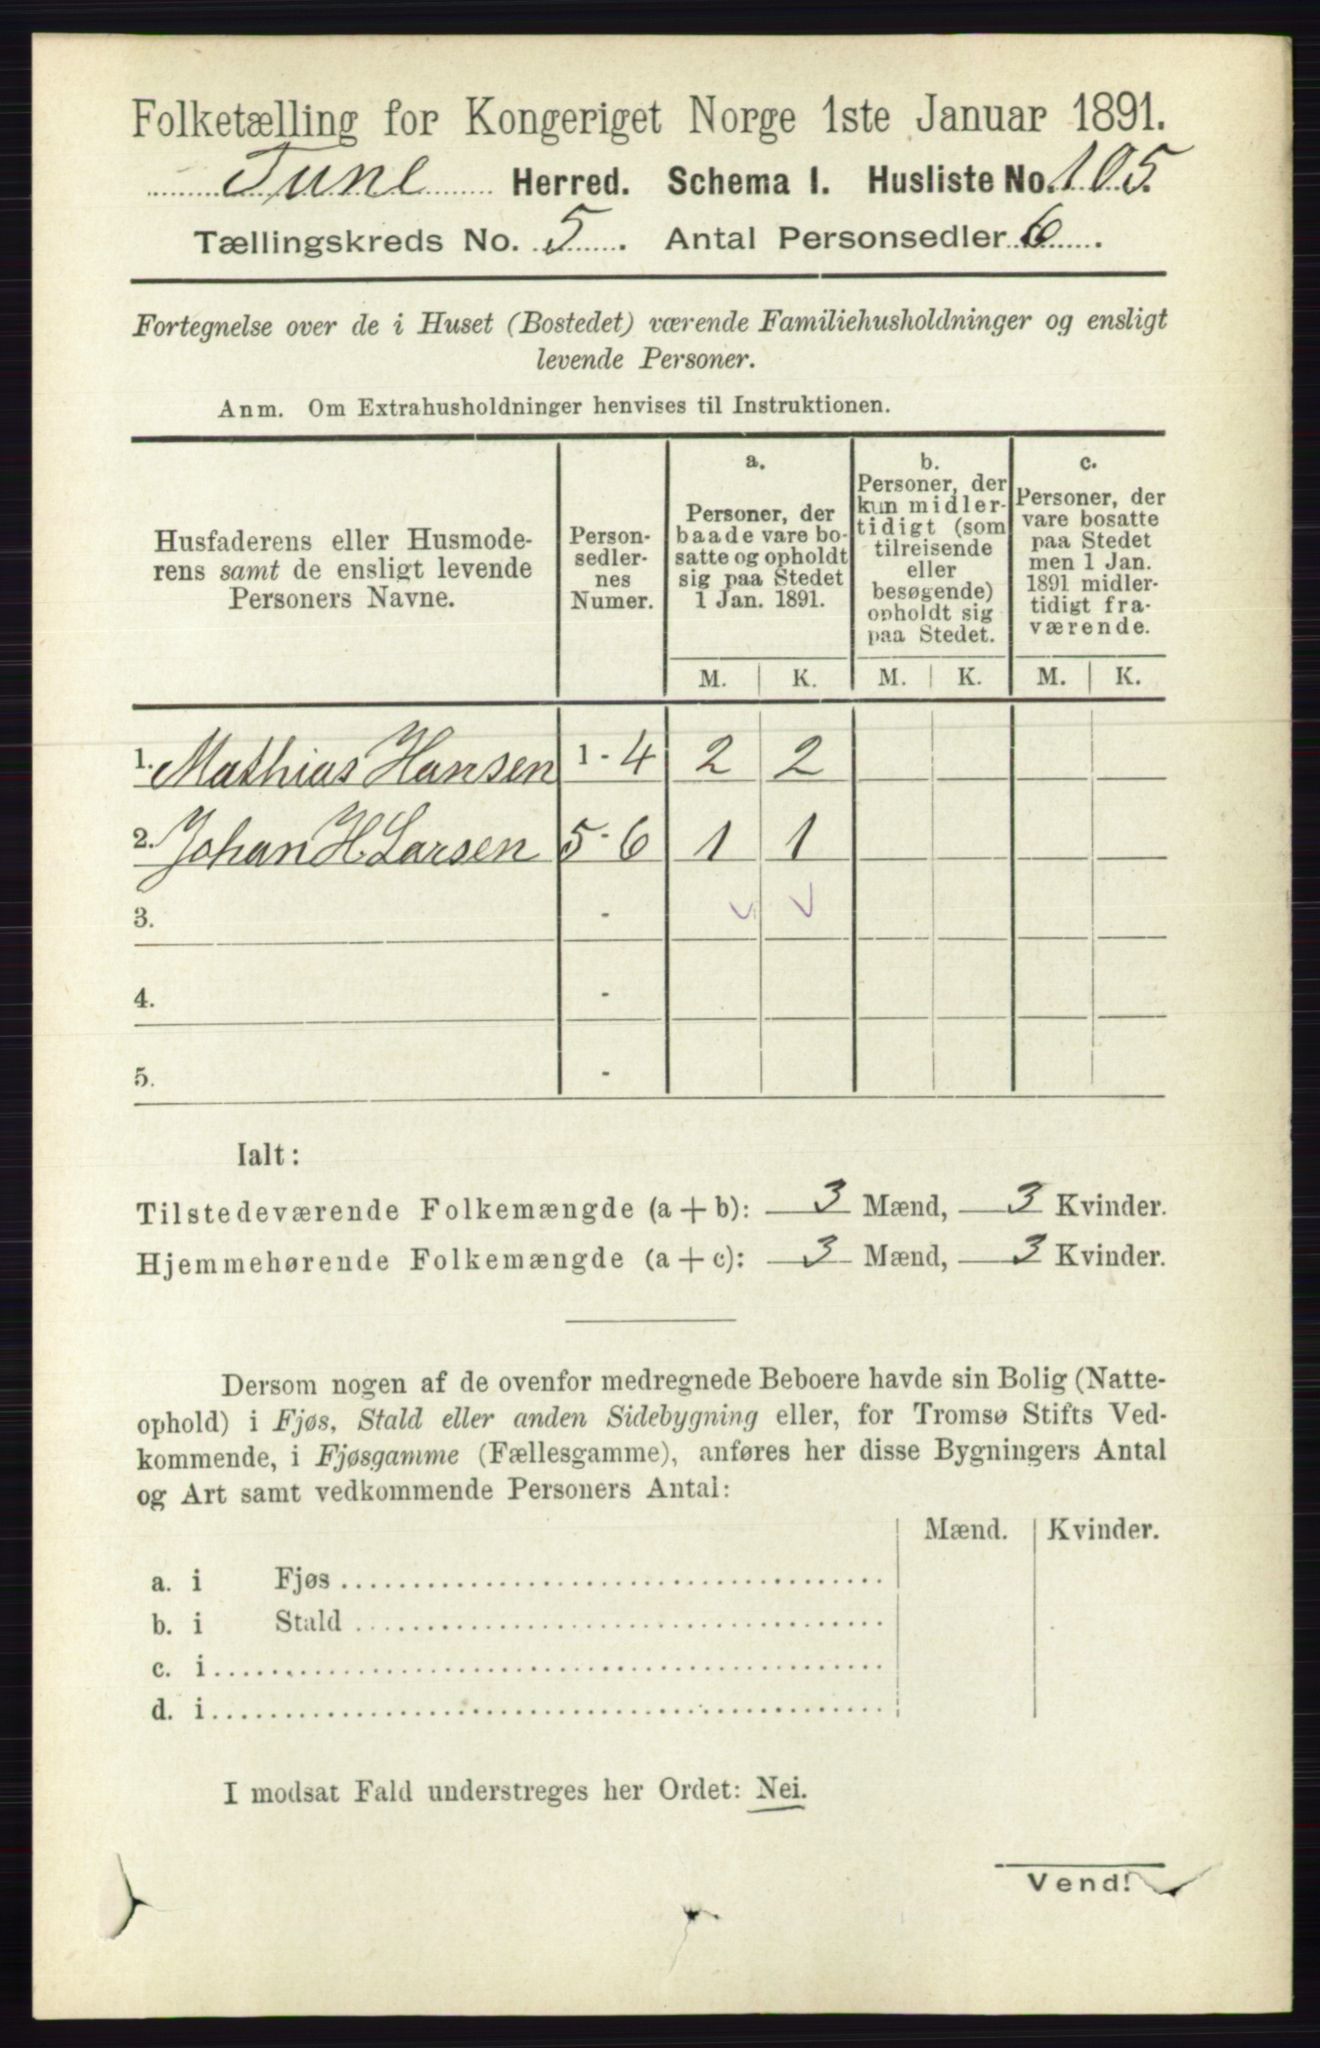 Folketælling for Kongeriget Norge 1ste Januar 1891.
Tune Herred. Schema I. Husliste No. 105.
Tællingskreds No. 5. Antal Personsedler 6.
Fortegnelse over de i Huset (Bostedet) værende Familiehusholdninger og ensligt
levende Personer.
Anm. Om Extrahusholdninger henvises til Instruktionen.
Husfaderens eller Husmode-
rens samt de ensligt levende
Personers Navne.
Person-
sedler-
nes
Numer.
a.
Personer, der
baade vare bo-
satte og opholdt
sig paa Stedet
1 Jan. 1891.
b.
Personer, der
kun midler-
tidigt (som
tilreisende
eller
besøgende)
opholdt sig
paa Stedet.
c.
Personer, der
vare bosatte
paa Stedet
men 1 Jan.
1891 midler-
tidigt fra-
værende.
M. K. M. K. M. K.
1. Mathias Hansen 1 - 4 2 2
2. Johan H. Larsen 5 - 6 1 1
3. -
4. -
5. -
Ialt:
Tilstedeværende Folkemængde (a + b): 3 Mænd, 3 Kvinder.
Hjemmehørende Folkemængde (a + c): 3 Mænd, 3 Kvinder.
Dersom nogen af de ovenfor medregnede Beboere havde sin Bolig (Natte-
ophold) i Fjøs, Stald eller anden Sidebygning eller, for Tromsø Stifts Ved-
kommende, i Fjøsgamme (Fællesgamme), anføres her disse Bygningers Antal
og Art samt vedkommende Personers Antal:
Mænd. Kvinder.
a. i Fjøs
b. i Stald
c. i
d. i
I modsat Fald understreges her Ordet: Nei.
Vend!